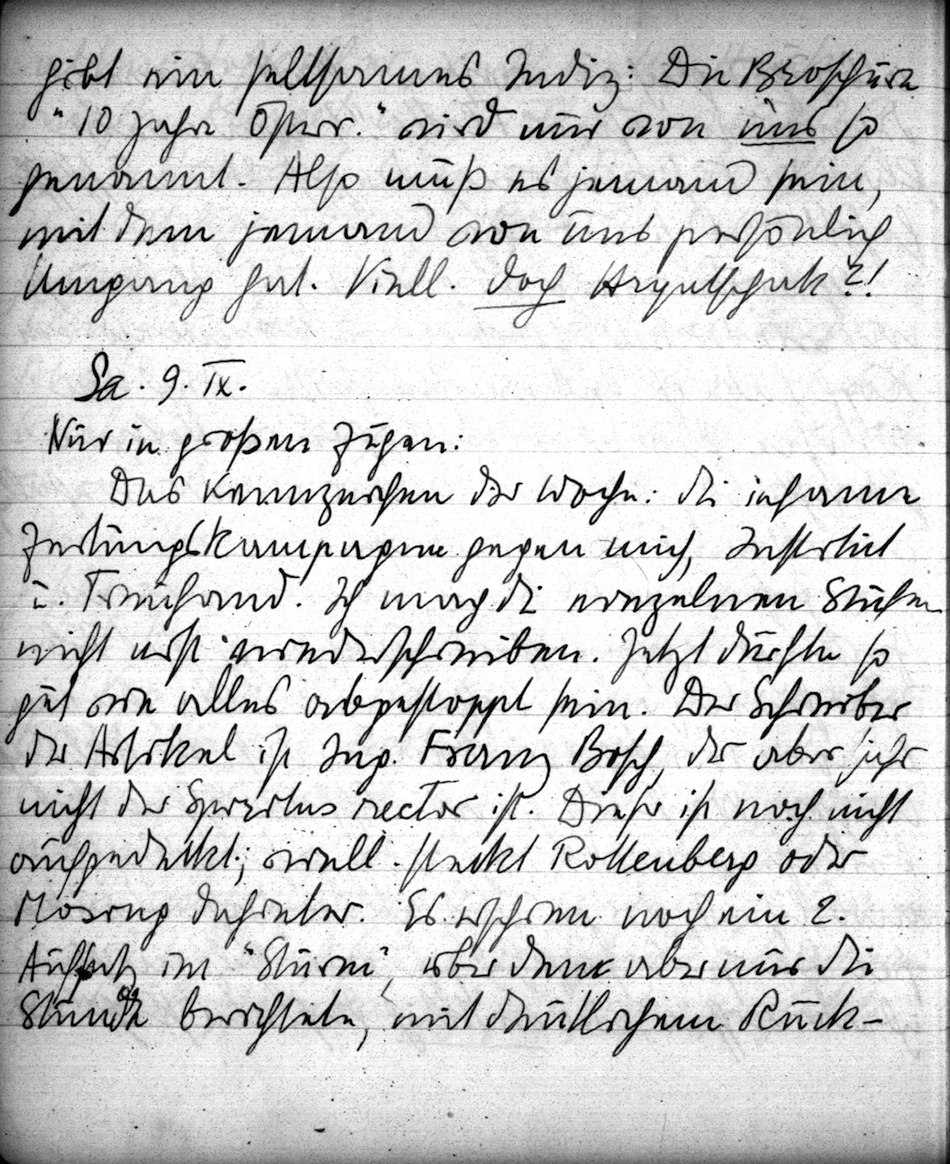 gibt ein seltsames Indiz: Die Broschüre
"10 Jahre Österr." wird nur von uns so
genannt. Also muß es jemand sein,
mit dem jemand von uns persönlich
Umgang hat. Viell. doch
Sa. 9. IX.
Nur in großen Zügen:
Das Kennzeichen der Woche: die infame
Zeitungskampagne gegen mich, Institut
u. Treuhand. Ich mag die einzelnen Stufen
nicht erst niederschreiben. Jetzt dürfte so
gut wie alles abgestoppt sein. Der Schreiber
der Artikel ist Ing. Franz Bosch, der aber
nicht der Spiritus rector ist. Dieser ist noch nicht
aufgedeckt; viell. steckt Rottenberg oder
dahinter. Es erschien noch ein 2.
Aufsatz im "Sturm", über den aber nur die
Stunde berichtete, mit deutlichem Rück-